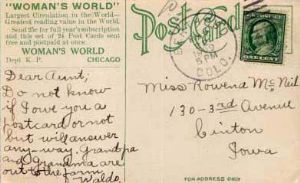 "WOMAN'S WORLD"
Largest Circulation in the World—
Greatest reading value in the World.
Send 25c for full year's subscription
and this set of 24 Post Cards sent
free and postpaid at once.
WOMAN'S WORLD
Dept. K. P. CHICAGO
Dear Aunt;
Do not know
if I owe you a
postcard or not
but will answer
any-way. Grandpa
and Grandma are
out to the farm.
Waldo.
Post Card
5 PM
COLO.
Miss Rowena McNeil
130-3rd Avenue
Clinton
Iowa
FOR ADDRESS ONLY